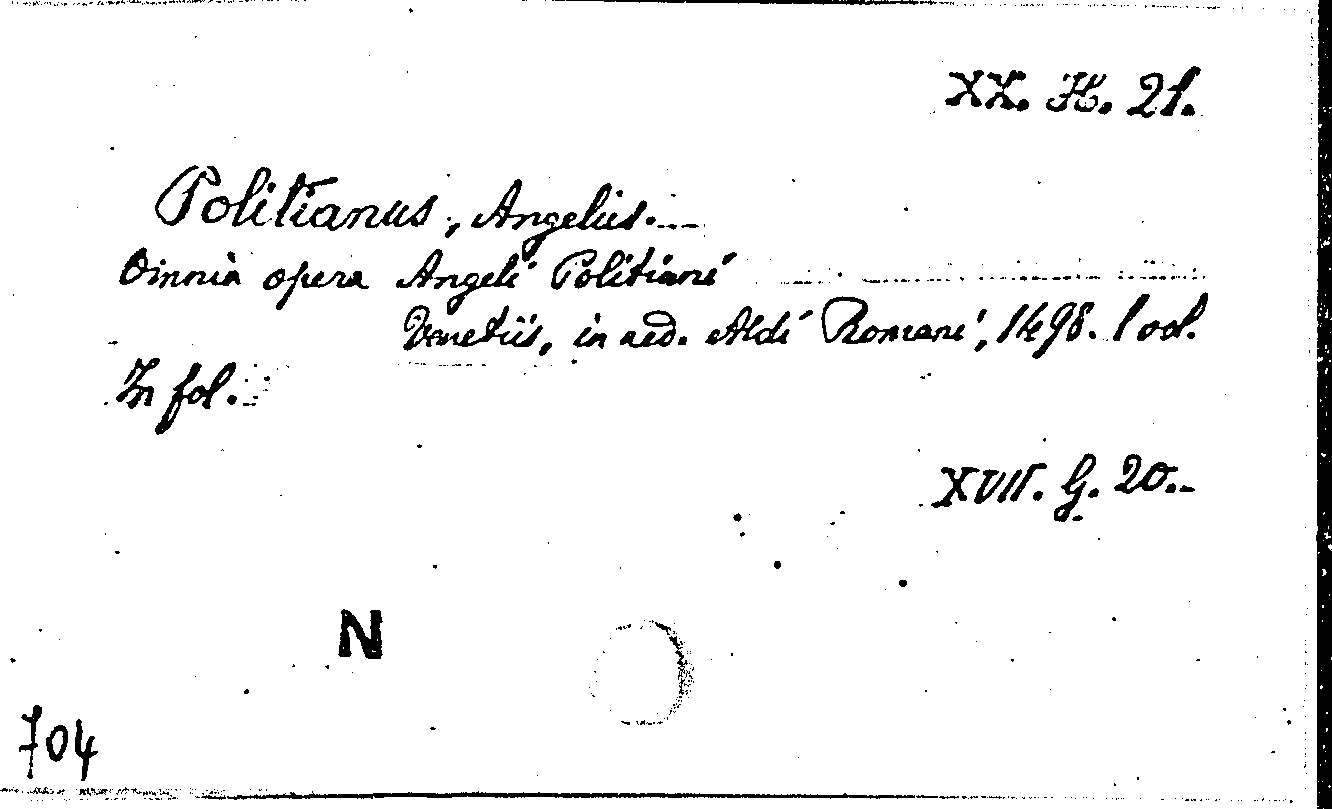 XX. H. 21.
Politianus, Angelus.
Omnia opera Angeli Politiani
Venetiis, in aed. Aldi Romani, 1498. 1 vol.
In fol.
XVII. G. 20.
N
704